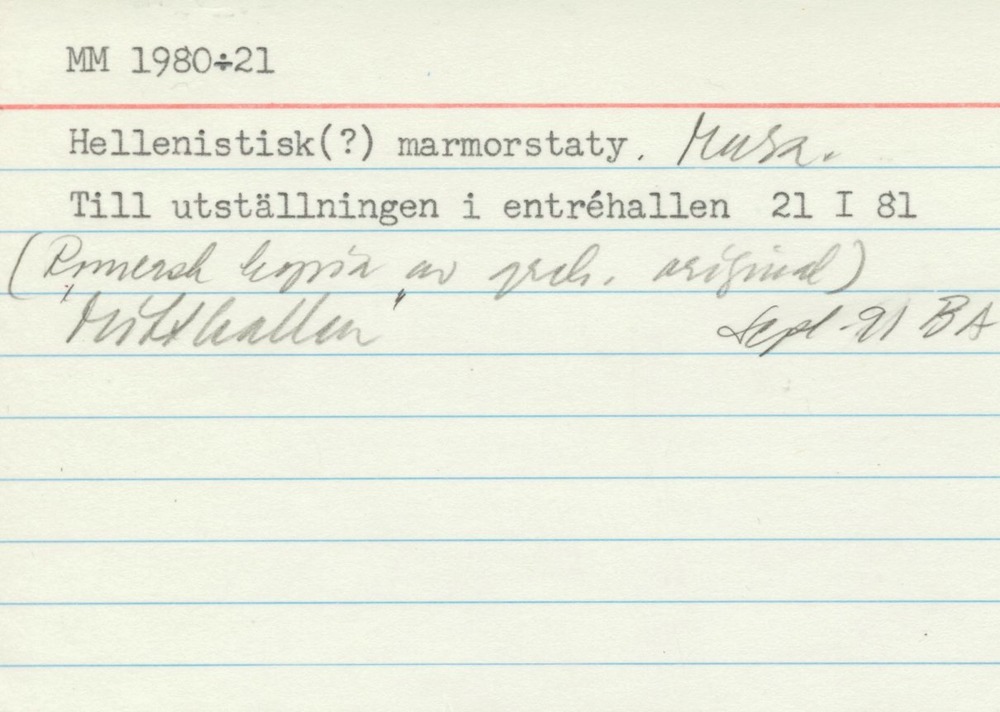 MM 1980÷21
Hellenistisk(?) marmorstaty. Musa.
Till utställningen i entréhallen 21 I 81
(Romersk kopia av grek. original)
"Mitthallen" Sept 91 BA